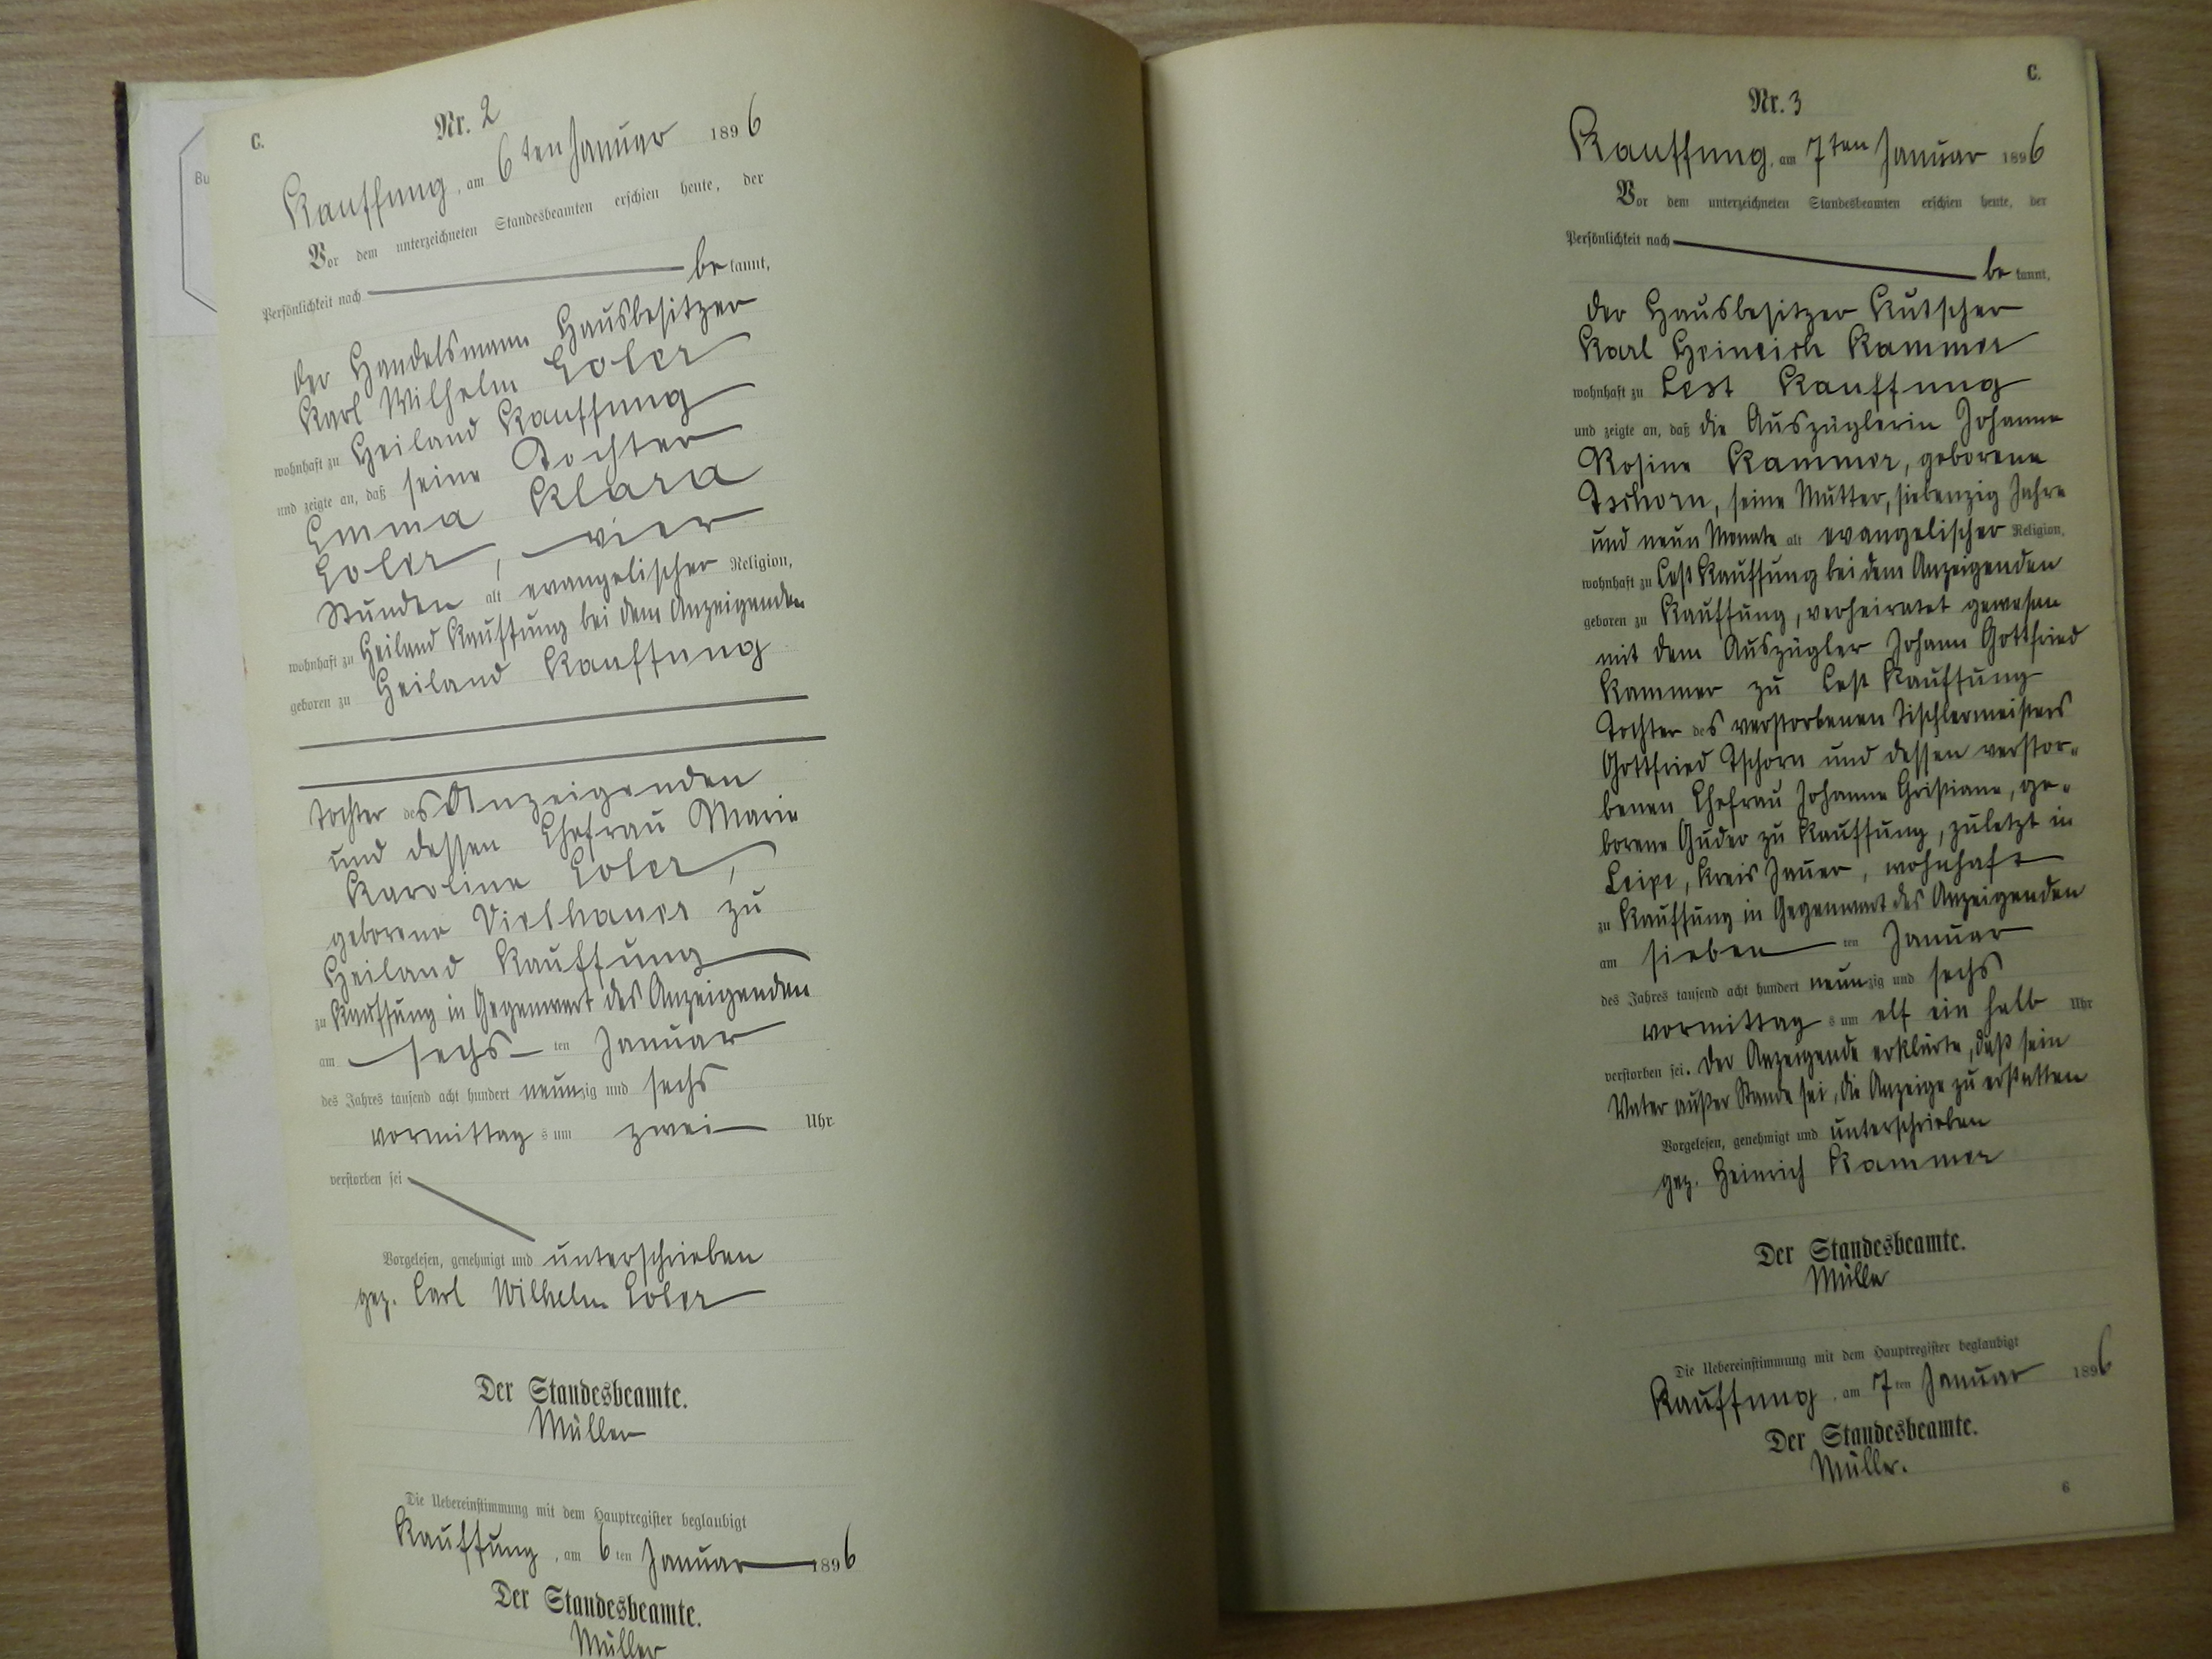 Bu
C.
Nr. 2
Kauffung, am 6ten Januar 1896
Vor dem unterzeichneten Standesbeamten erschien heute, der
Persönlichkeit nach bekannt,
der Handelsmann Hausbesitzer
Karl Wilhelm
wohnhaft zu Heiland Kauffung
und zeigte an, daß seine Tochter
Emma Klara
vier
Stunden alt evangelischer Religion,
wohnhaft zu Heiland Kauffung bei dem Anzeigenden
geboren zu Heiland Kauffung
Tochter des Anzeigenden
und dessen Ehefrau Marie
Karoline
geborene Vielhauer zu
Heiland Kauffung
zu Kauffung in Gegenwart des Anzeigenden
am sechsten Januar
des Jahres tausend acht hundert neunzig und sechs
vormittags um zwei Uhr
verstorben sei
Vorgelesen, genehmigt und unterschrieben
gez. Carl Wilhelm
Der Standesbeamte.
Müller
Die Uebereinstimmung mit dem Hauptregister beglaubigt
Kauffung, am 6ten Januar 1896
Der Standesbeamte.
Müller
C.
Nr. 3
Kauffung, am 7ten Januar 1896
Vor dem unterzeichneten Standesbeamten erschien heute, der
Persönlichkeit nach bekannt,
der Hausbesitzer Kutscher
Karl Heinrich Kammer
wohnhaft zu Lest Kauffung
und zeigte an, daß die Auszüglerin Johanne
Rosine Kammer, geborene
Tschorn, seine Mutter, siebenzig Jahre
und neun Monate alt evangelischer Religion,
wohnhaft zu Lest Kauffung bei dem Anzeigenden
geboren zu Kauffung, verheiratet gewesen
mit dem Auszügler Johann Gottfried
Kammer zu Lest Kauffung
Tochter des verstorbenen Tischlermeisters
Gottfried Tschorn und dessen verstor-
benen Ehefrau Johanne Cristiane, ge-
borene Guder zu Kauffung, zuletzt in
Leipe, Kreis Jauer, wohnhaft
zu Kauffung in Gegenwart des Anzeigenden
am siebenten Januar
des Jahres tausend acht hundert neunzig und sechs
vormittags um elf ein halb Uhr
verstorben sei. Der Anzeigende erklärte, daß sein
Vater außer Stande sei, die Anzeige zu erstatten
Vorgelesen, genehmigt und unterschrieben
gez. Heinrich Kammer
Der Standesbeamte.
Müller
Die Uebereinstimmung mit dem Hauptregister beglaubigt
Kauffung, am 7ten Januar 1896
Der Standesbeamte.
Müller.
6